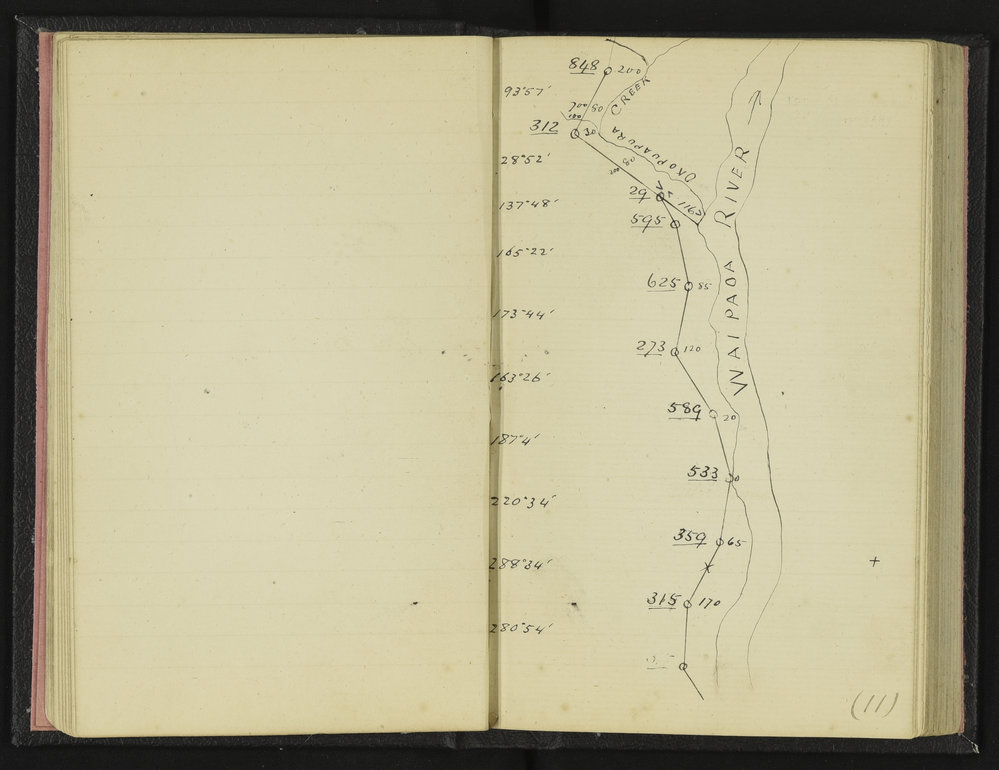 848 200
93°57'
CREEK
200 80
312 30
OKOPUAPURA
28°52'
200 80
29
116
137°48'
595
RIVER
165°22'
625 85
WAIPAOA
173°44'
273 120
163°26'
589 20
187°4'
533 0
220°34'
359 65
288°34'
315 170
280°54'
(11)